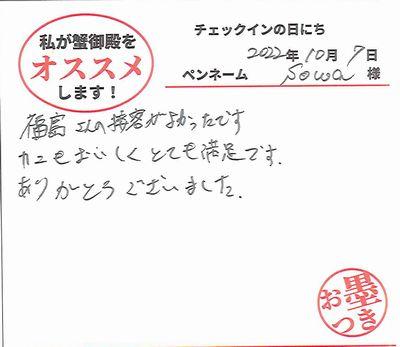 私が蟹御殿を
オススメ
します！
チェックインの日にち
2022年10月7日
ペンネーム sowa 様
福島さんの接客がよかったです
カニもおいしくとても満足です.
ありがとうございました.
お墨つき